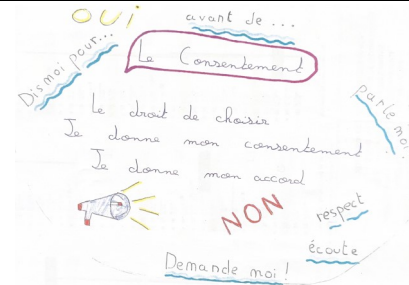 OUI
avant de ...
Dis moi pour...
Le Consentement
parle moi
Le droit de choisir
Je donne mon consentement
Je donne mon accord
NON
respect
écoute
Demande moi !